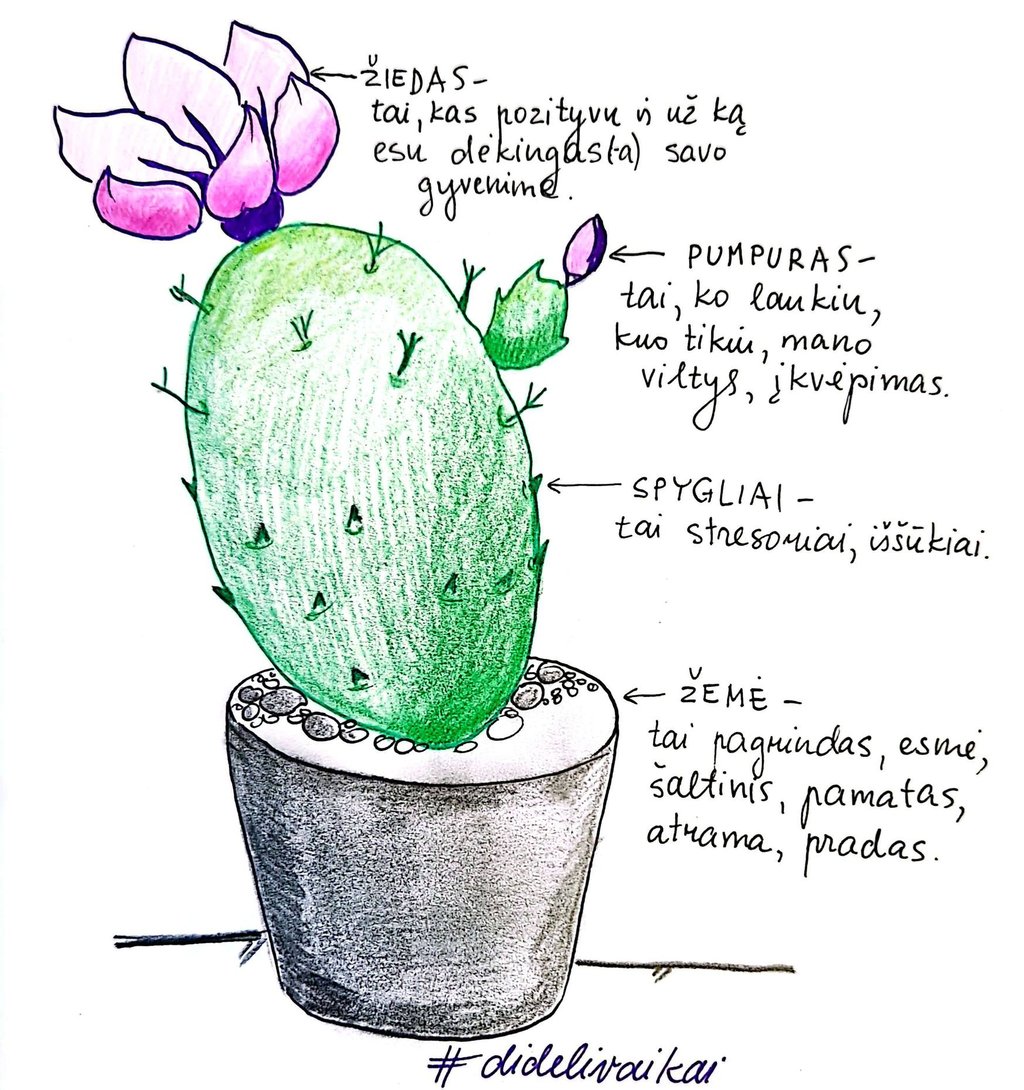 ŽIEDAS –
tai, kas pozityvu ir už ką
esu dėkingas(ta) savo
gyvenime.
PUMPURAS –
tai, ko laukiu,
kuo tikiu, mano
viltys, įkvėpimas.
SPYGLIAI –
tai stresoriai, iššūkiai.
ŽEMĖ –
tai pagrindas, esmė,
šaltinis, pamatas,
atrama, pradas.
#didelivaikai